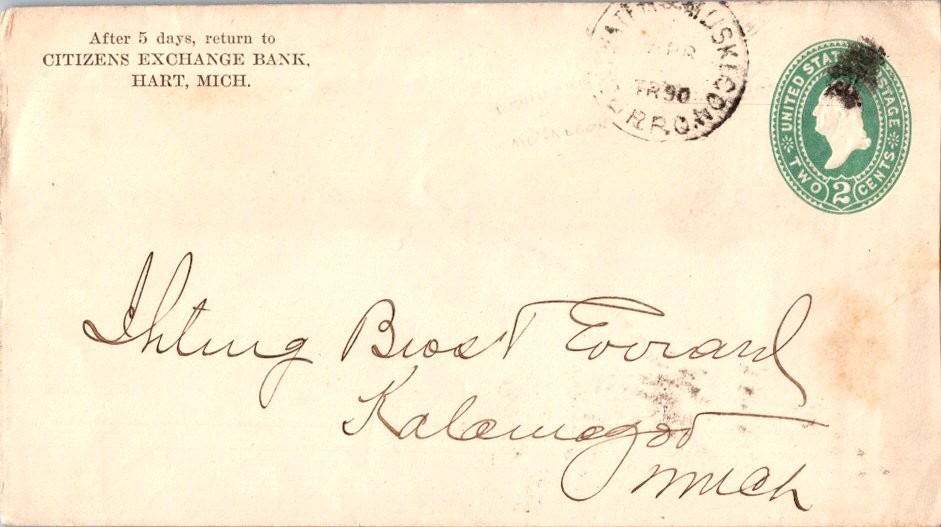 After 5 days, return to
CITIZENS EXCHANGE BANK,
HART, MICH.
7R90
R.P.O.
UNITED STATES POSTAGE
TWO 2 CENTS
Ihling Bros & Everard
Kalamazoo
Mich